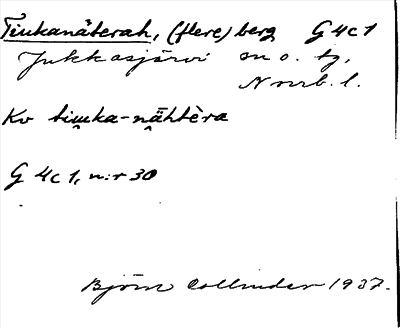 Tiukanäterah, (flere) berg G4c1
Jukkasjärvi sn o. tg,
Nrrb. l.
Kv tiu̯ka-nä̮htèra
G 4c1, n:r 30
Björn Collinder 1937.